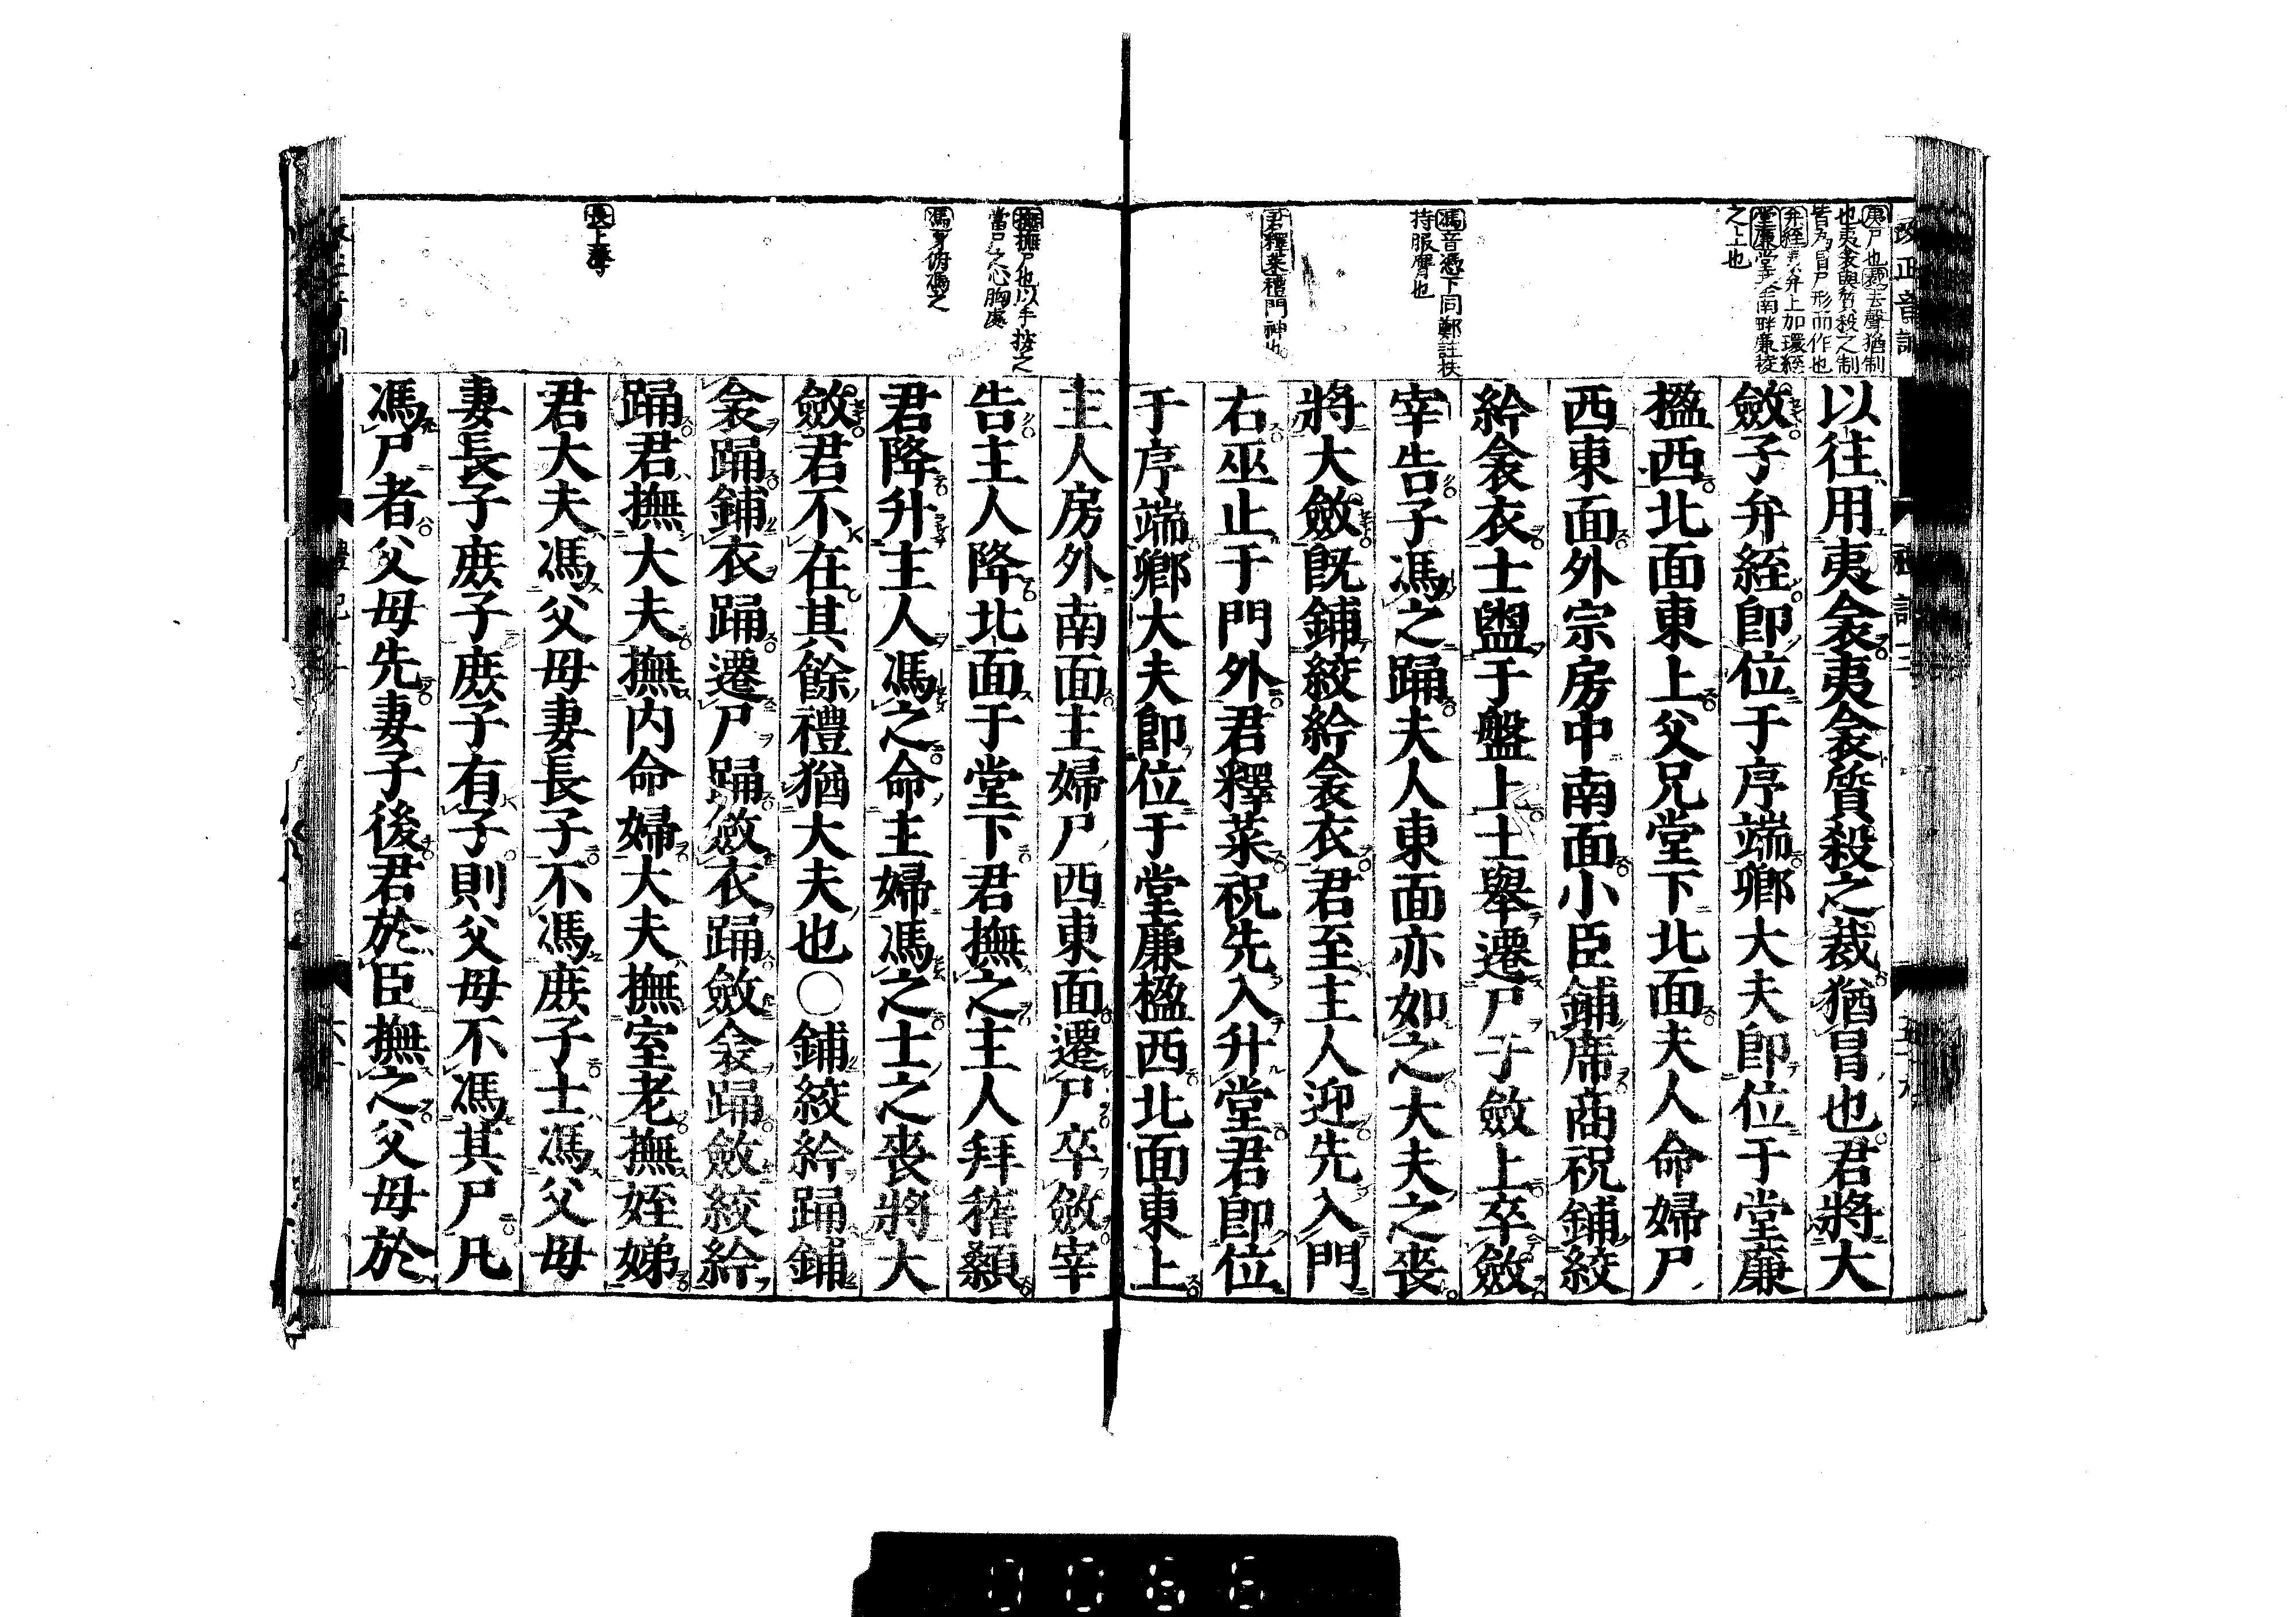 夷尸也裁去聲猶制
也夷衾與質殺之制
皆爲冒尸形而作也
弁絰素弁上加環絰
堂廉堂基南畔廉稜
之上也
馮音憑下同鄭註扶
持服膺也
君釋菜禮門神也
以往用夷衾夷衾質殺之裁猶冒也君將大
斂子弁絰卽位于序端卿大夫卽位于堂廉
楹西北面東上父兄堂下北面夫人命婦尸
西東面外宗房中南面小臣鋪席商祝鋪絞
紟衾衣士盥于盤上士舉遷尸于斂上卒斂
宰告子馮之踊夫人東面亦如之大夫之喪
將大斂既鋪絞紟衾衣君至主人迎先入門
右巫止于門外君釋菜祝先入升堂君卽位
于序端卿大夫卽位于堂廉楹西北面東上
撫撫尸也以手按之
當尸之心胸處
馮身俯馮之
長上聲
主人房外南面主婦尸西東面遷尸卒斂宰
告主人降北面于堂下君撫之主人拜稽顙
君降升主人馮之命主婦馮之士之喪將大
斂君不在其餘禮猶大夫也○鋪絞紟踊鋪
衾踊鋪衣踊遷尸踊斂衣踊斂衾踊斂絞紟
踊君撫大夫撫內命婦大夫撫室老撫姪娣
君大夫馮父母妻長子不馮庶子士馮父母
妻長子庶子庶子有子則父母不馮其尸凡
馮尸者父母先妻子後君於臣撫之父母於